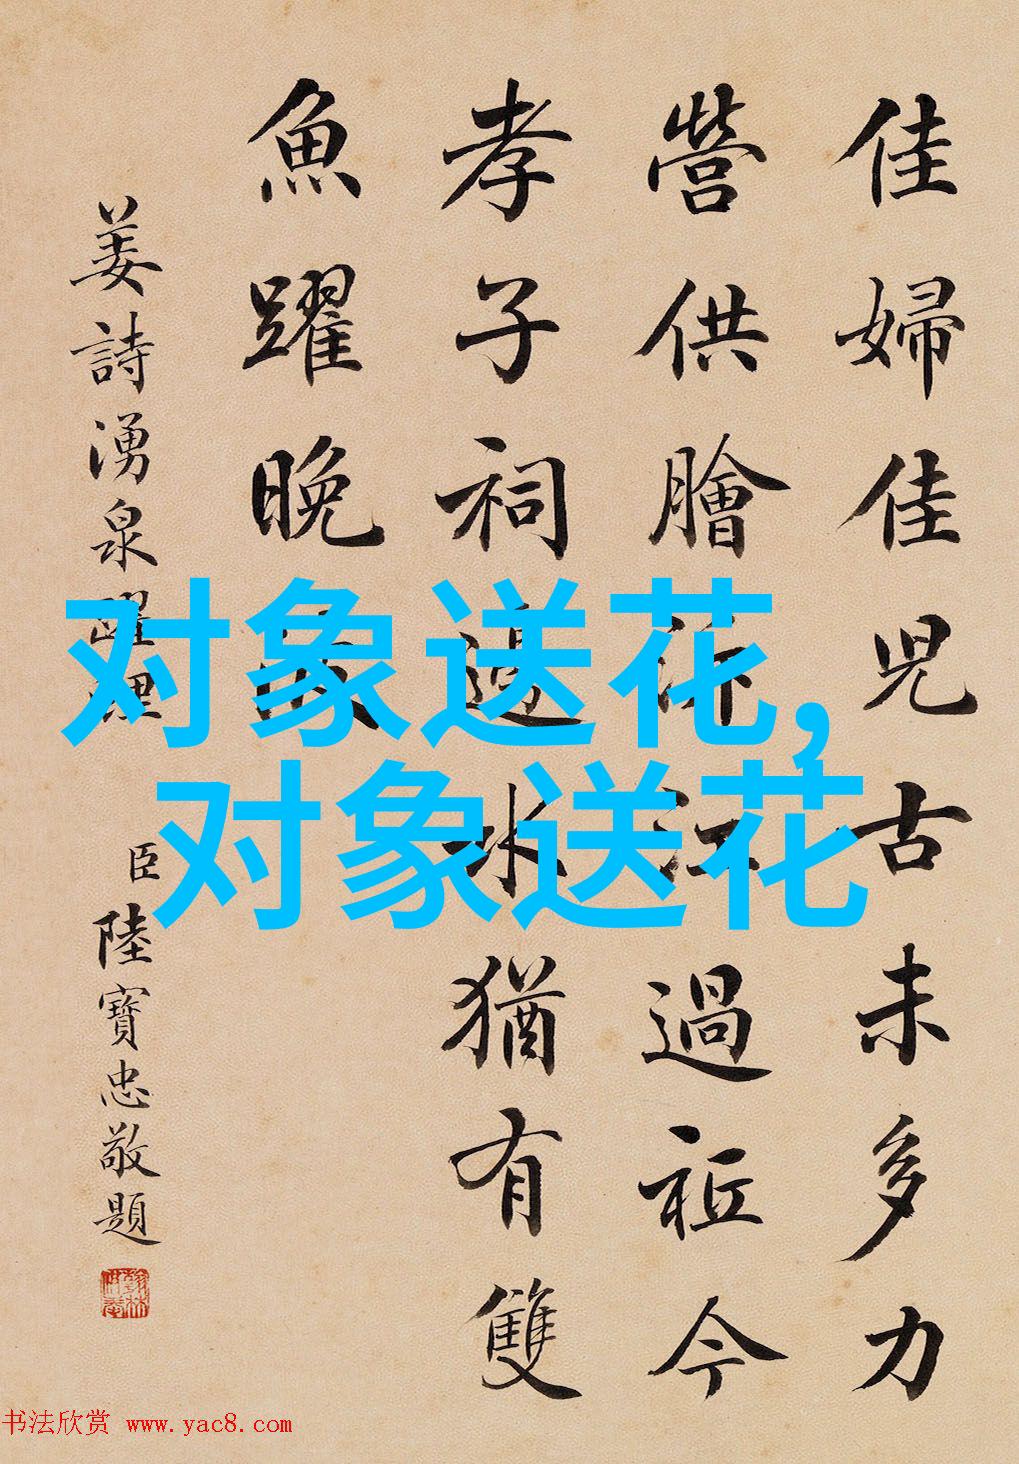 佳婦佳兒古未多力
營供膾泝江過祗今
孝子祠邊水猶有雙
魚躍晚
姜詩湧泉躍鯉
臣陸寶忠敬題
对象送花,
对象送花
书法欣赏 www.yac8.com